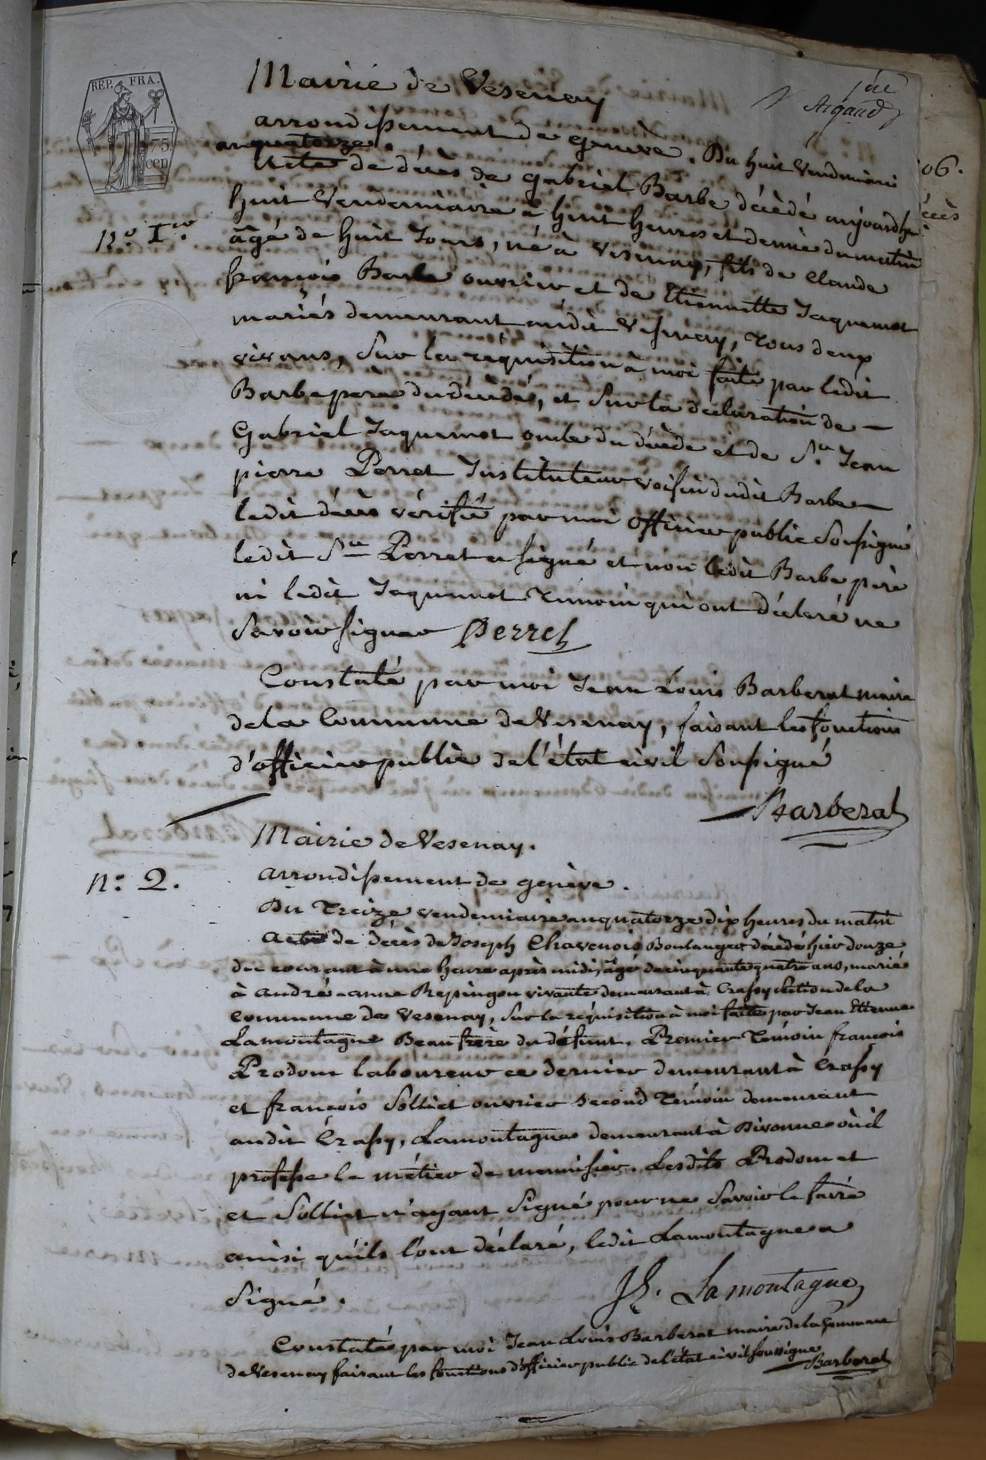 REP. FRA.
75
cen
1re
Argand
Mairie de Vesenay
arrondissement de genève. Du huit Vendemiaire
an quatorze.
Acte de décès de gabriel Barbe décédé aujourdhui
huit Vendemiaire à huit heures et demie du matin
N.o 1er
âgé de huit Jours, né à Vesenay, fils de Claude
françois Barbe ouvrier et de Etiennette Jaquemot
mariés demeurant audit Vesenay, tous deux
vivans, Sur la réquisition à moi faite par ledit
Barbe pere du décédé, et Sur la déclaration de —
Gabriel Jaquemot oncle du décédé et de Sr. Jean
pierre Perret Instituteur voisin dudit Barbe —
ledit décès vérifié par moi officier public Soussigné
ledit Sr Perret a signé et non ledit Barbe père
ni ledit Jaquemot témoin qui ont déclaré ne
Savoir signer Perret
Constaté par moi Jean Louis Barberat maire
de la Commune de Vesenay, faisant les fonctions
d'officier public de l'état civil Soussigné
Barberat
Mairie de Vesenay.
N.o 2.
arrondissement de genève.
Du Treize vendemiaire an quatorze dix heures du matin
Acte de décès de Joseph Chavenois Boulanger décédé hier douze
du courant à une heure après midi, âgé de cinquante quatre ans, marié
à andré-anne Repingon vivante demeurant à Crassy section de la
commune de Vesenay, Sur la réquisition à moi faite par Jean Etienne
Lamontagne Beau frère du défunt. Premier Témoin françois
Prodom laboureur ce dernier demeurant à Crassy
et françois Solliet ouvrier second Témoin demeurant
audit Crassy, Lamontagne demeurant à Divonne où il
professe le métier de menuisier. Lesdits Prodom et
et Solliet n'ayant Signé pour ne Savoir le faire
ainsi qu'ils l'ont déclaré, ledit Lamontagne a
Signé.
JE. Lamontagne
Constaté par moi Jean Louis Barberat maire de la Commune
de Vesenay faisant les fonctions d'officier public de l'état civil soussigné
Barberat
06.
écès